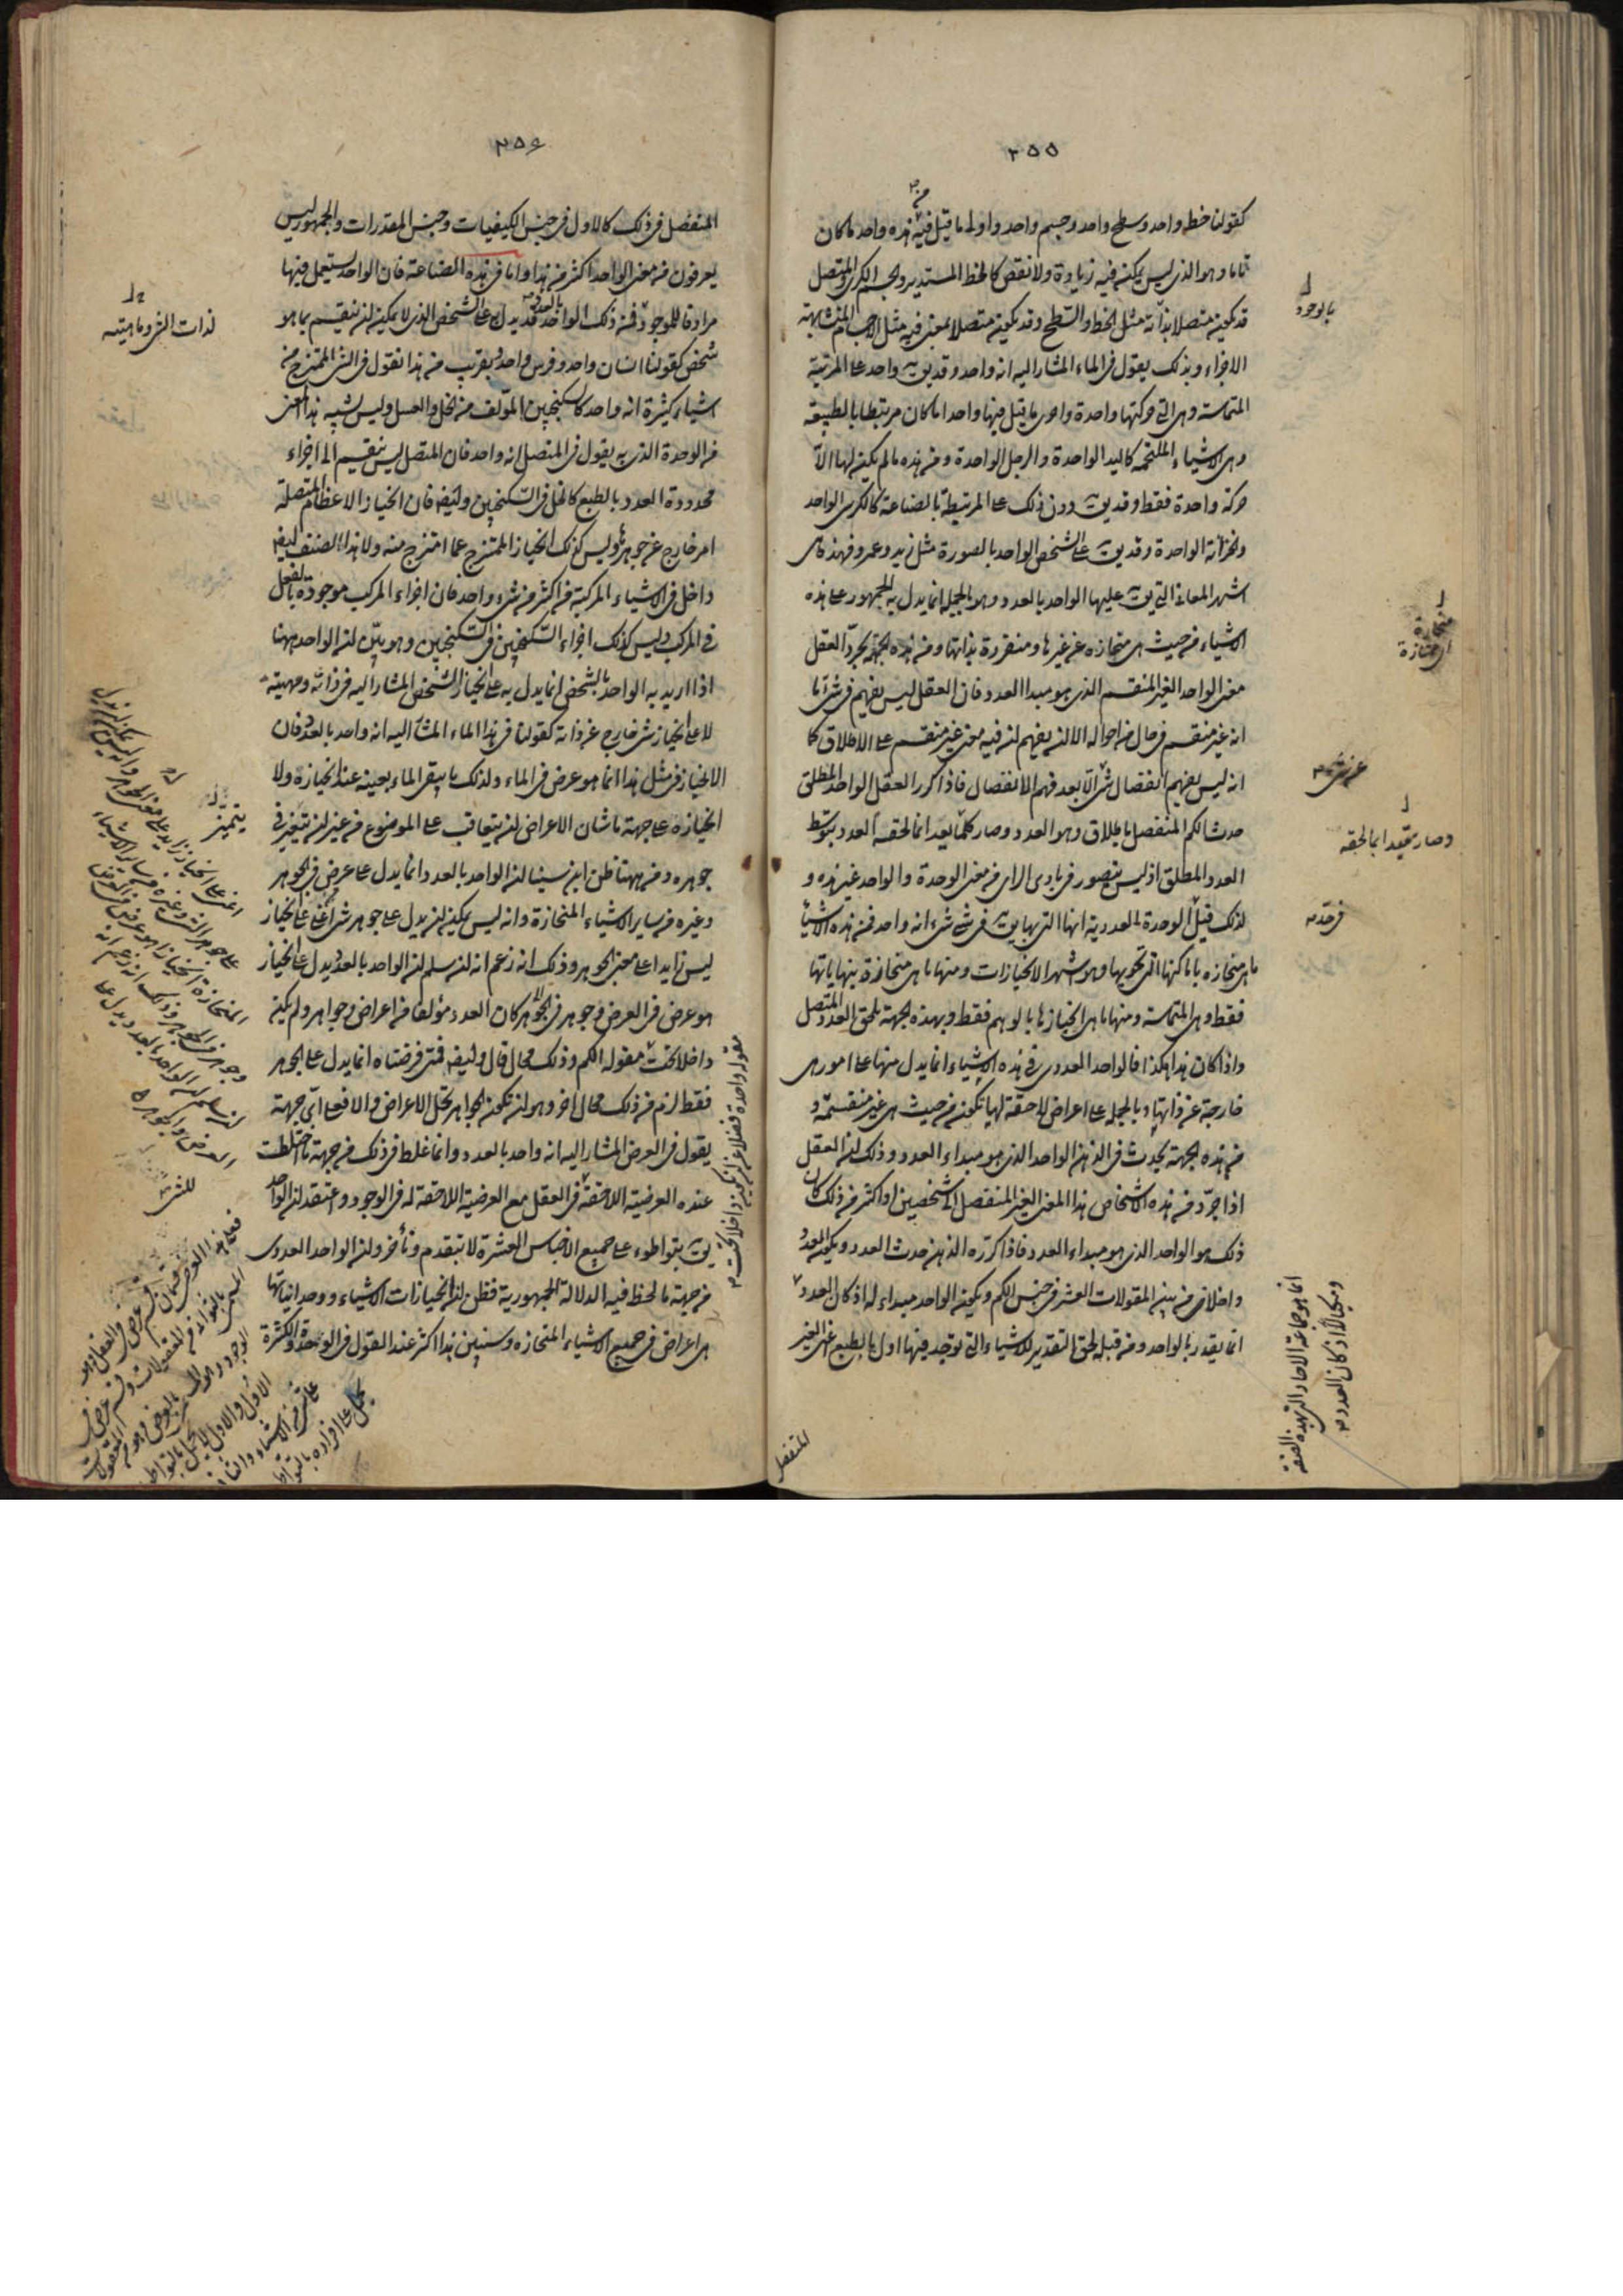 ٣٥٥
كقولنا خط واحد وسطح واحد وجسم واحد واولى ما قيل فيه من هذه واحد ما كان
تاما وهو الذى ليس يمكن فيه زيادة ولا نقص كالخط المستدير والجسم الكرى والمتصل
قد يكون متصلا بذاته مثل الخط والسطح وقد يكون متصلا بمعنى فيه مثل الاجسام المتشابهة
الاجزاء وبذلك يقول فى الماء المشار اليه انه واحد وقد يق واحد على المرتبة
المتماسة وهى التى حركتها واحدة واحرى ما قيل فيها واحد ما كان مرتبطا بالطبيعة
وهى الاشياء الملتحمة كاليد الواحدة والرجل الواحدة ومن هذه ما لم يكن لها الا
حركة واحدة فقط وقد يق دون ذلك على المرتبطة بالصناعة كالكرسى الواحد
والخزانة الواحدة وقد يق على الشخص الواحد بالصورة مثل زيد وعمرو فهذه هى
اشهر المعانى التى يق عليها الواحد بالعدد وهو بالجملة انما يدل به الجمهور على هذه
الاشياء من حيث هى منحازة عن غيرها ومنفردة بذاتها ومن هذه الجهة يجرد العقل
معنى الواحد الغير المنقسم الذى هو مبدا العدد فان العقل ليس يفهم فى شئ ما
انه غير منقسم فى حال من احواله الا ان يفهم ان فيه معنى غير منقسم على الاطلاق كما
انه ليس يفهم انفصال شئ الا بعد فهم الانفصال فاذا كرر العقل الواحد المطلق
حدث الكم المنفصل باطلاق وهو العدد وصار كلما يعد انما لحقه العدد بتوسط
العدد المطلق اذ ليس يتصور فى بادى الراى من معنى الوحدة والواحد غير هذه و
لذلك قيل الوحدة العددية انها التى بها يق فى شئ شئ انه واحد فمن هذه الاشياء
ما هى منحازة باماكنها التى تحويها وهو اشهر الانحيازات ومنها ما هى منحازة بنهاياتها
فقط وهى المتماسة ومنها ما هى انحيازها بالوهم فقط وبهذه الجهة يلحق العدد المتصل
واذا كان هذا هكذا فالواحد العددى فى هذه الاشياء انما يدل منها على امور هى
خارجة عن ذاتها وبالجملة على اعراض لاحقة لها تكون من حيث هى غير منقسمة و
من هذه الجهة يحدث فى الذهن الواحد الذى هو مبداء العدد وذلك ان العقل
اذا جرد من هذه الاشخاص هذا المعنى الغير المنفصل الى شخصين او اكثر من ذلك كان
ذلك هو الواحد الذى هو مبداء العدد فاذا كرره الذهن حدث العدد ويكون العدد
داخلا من بين المقولات العشر فى جنس الكم ويكون الواحد مبداء له اذ كان العدد
انما يقدر بالواحد ومن قبله يلحق التقدير للاشياء التى توجد فيها اولا بالطبع اعنى الغير
المنفصل
بالوجود
منحازة
اى ممتازة
عن شئ
وصار بقيد انما لحقه
فى حده
انما هو جماعة الاحاد التى بهذه الصفة
ومكيالا اذ كان العدد
٣٥٦
المنفصل فى ذلك كالاول فى جنس الكيفيات وجنس المقدرات والجمهور ليس
يعرفون من معنى الواحد اكثر من هذا واما فى هذه الصناعة فان الواحد يستعمل فيها
مرادفا للموجود فمن ذلك الواحد بالعدد قد يدل به على الشخص الذى لا يمكن ان ينقسم بما هو
شخص كقولنا انسان واحد وفرس واحد وبقريب من هذا نقول فى الشئ الممتزج من
اشياء كثيرة انه واحد كالسكنجبين المؤلف من الخل والعسل وليس يشبه هذا المعنى
من الوحدة الذى به يقول فى المتصل انه واحد فان المتصل ليس ينقسم الى اجزاء
محدودة العدد بالطبع كالخل فى السكنجبين وايضا فان انحياز الاعظام المتصلة
امر خارج عن جوهرها وليس كذلك انحياز الممتزج عما امتزج منه ولا هذا الصنف ايضا
داخل فى الاشياء المركبة من اكثر من شئ واحد فان اجزاء المركب موجودة بالفعل
فى المركب وليس كذلك اجزاء السكنجبين فى السكنجبين وهو بين ان الواحد ههنا
اذا اريد به الواحد بالشخص انما يدل به على انحياز الشخص المشار اليه فى ذاته ومهيته
لا على انحياز شئ خارج عن ذاته كقولنا فى هذا الماء المشار اليه انه واحد بالعدد فان
الانحياز فى مثل هذا انما هو عرض فى الماء ولذلك ما يبقى الماء بعينه عند انحيازه ولا
انحيازه على جهة ما شان الاعراض ان يتعاقب على الموضوع من غير ان يتغير فى
جوهره ومن ههنا ظن ابن سينا ان الواحد بالعدد انما يدل على عرض فى الجوهر
وغيره من ساير الاشياء المنحازة وانه ليس يمكن ان يدل على جوهر شئ اعنى على انحياز
ليس زايدا على معنى الجوهر وذلك انه زعم انه ان سلم ان الواحد بالعدد يدل على انحياز
هو عرض فى العرض وجوهر فى الجوهر كان العدد مؤلفا من اعراض وجواهر ولم يكن
داخلا تحت مقولة الكم وذلك محال قال وايضا فمتى فرضناه انما يدل على الجوهر
فقط لزم من ذلك محال اخر وهو ان تكون الجواهر تحل الاعراض والا فعلى اى جهة
يقول فى العرض المشار اليه انه واحد بالعدد وانما غلط فى ذلك من جهة ما اختلطت
عنده العرضية اللاحقة فى العقل مع العرضية اللاحقة له فى الوجود واعتقد ان الواحد
يق بتواطوء على جميع الاجناس العشرة لا بتقدم وتأخر وان الواحد العددى
من جهة ما لحظ فيه الدلالة الجمهورية فظن ان انحيازات الاشياء ووحدانياتها
هى اعراض فى جميع الاشياء المنحازة وسنبين هذا اكثر عند القول فى الوحدة والكثرة
لذات الشئ وماهيته
يتميز
مقولة واحدة فضلا عن ان يكون داخلا تحت
اعنى على انحياز زايد على معنى الجوهر
على جوهر الشئ وغيره من ساير الاشياء
المنحازة انحيازا هو عرض فى العرض
وجوهر فى الجوهر وذلك انه زعم انه
ان سلم ان الواحد بالعدد يدل على
العرض والجوهر